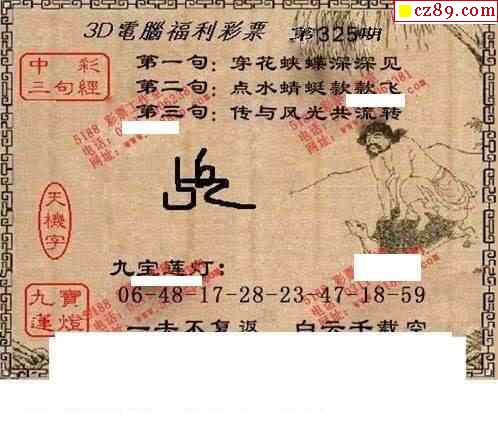 cz89.com
3D電腦福利彩票 第325期
中彩
三句經
第一句：穿花蛱蝶深深见
第二句：点水蜻蜓款款飞
第三句：传与风光共流转
天機字
九宝莲灯：
九寶
蓮燈
06-48-17-28-23-47-18-59
一去不复返 白云千载空